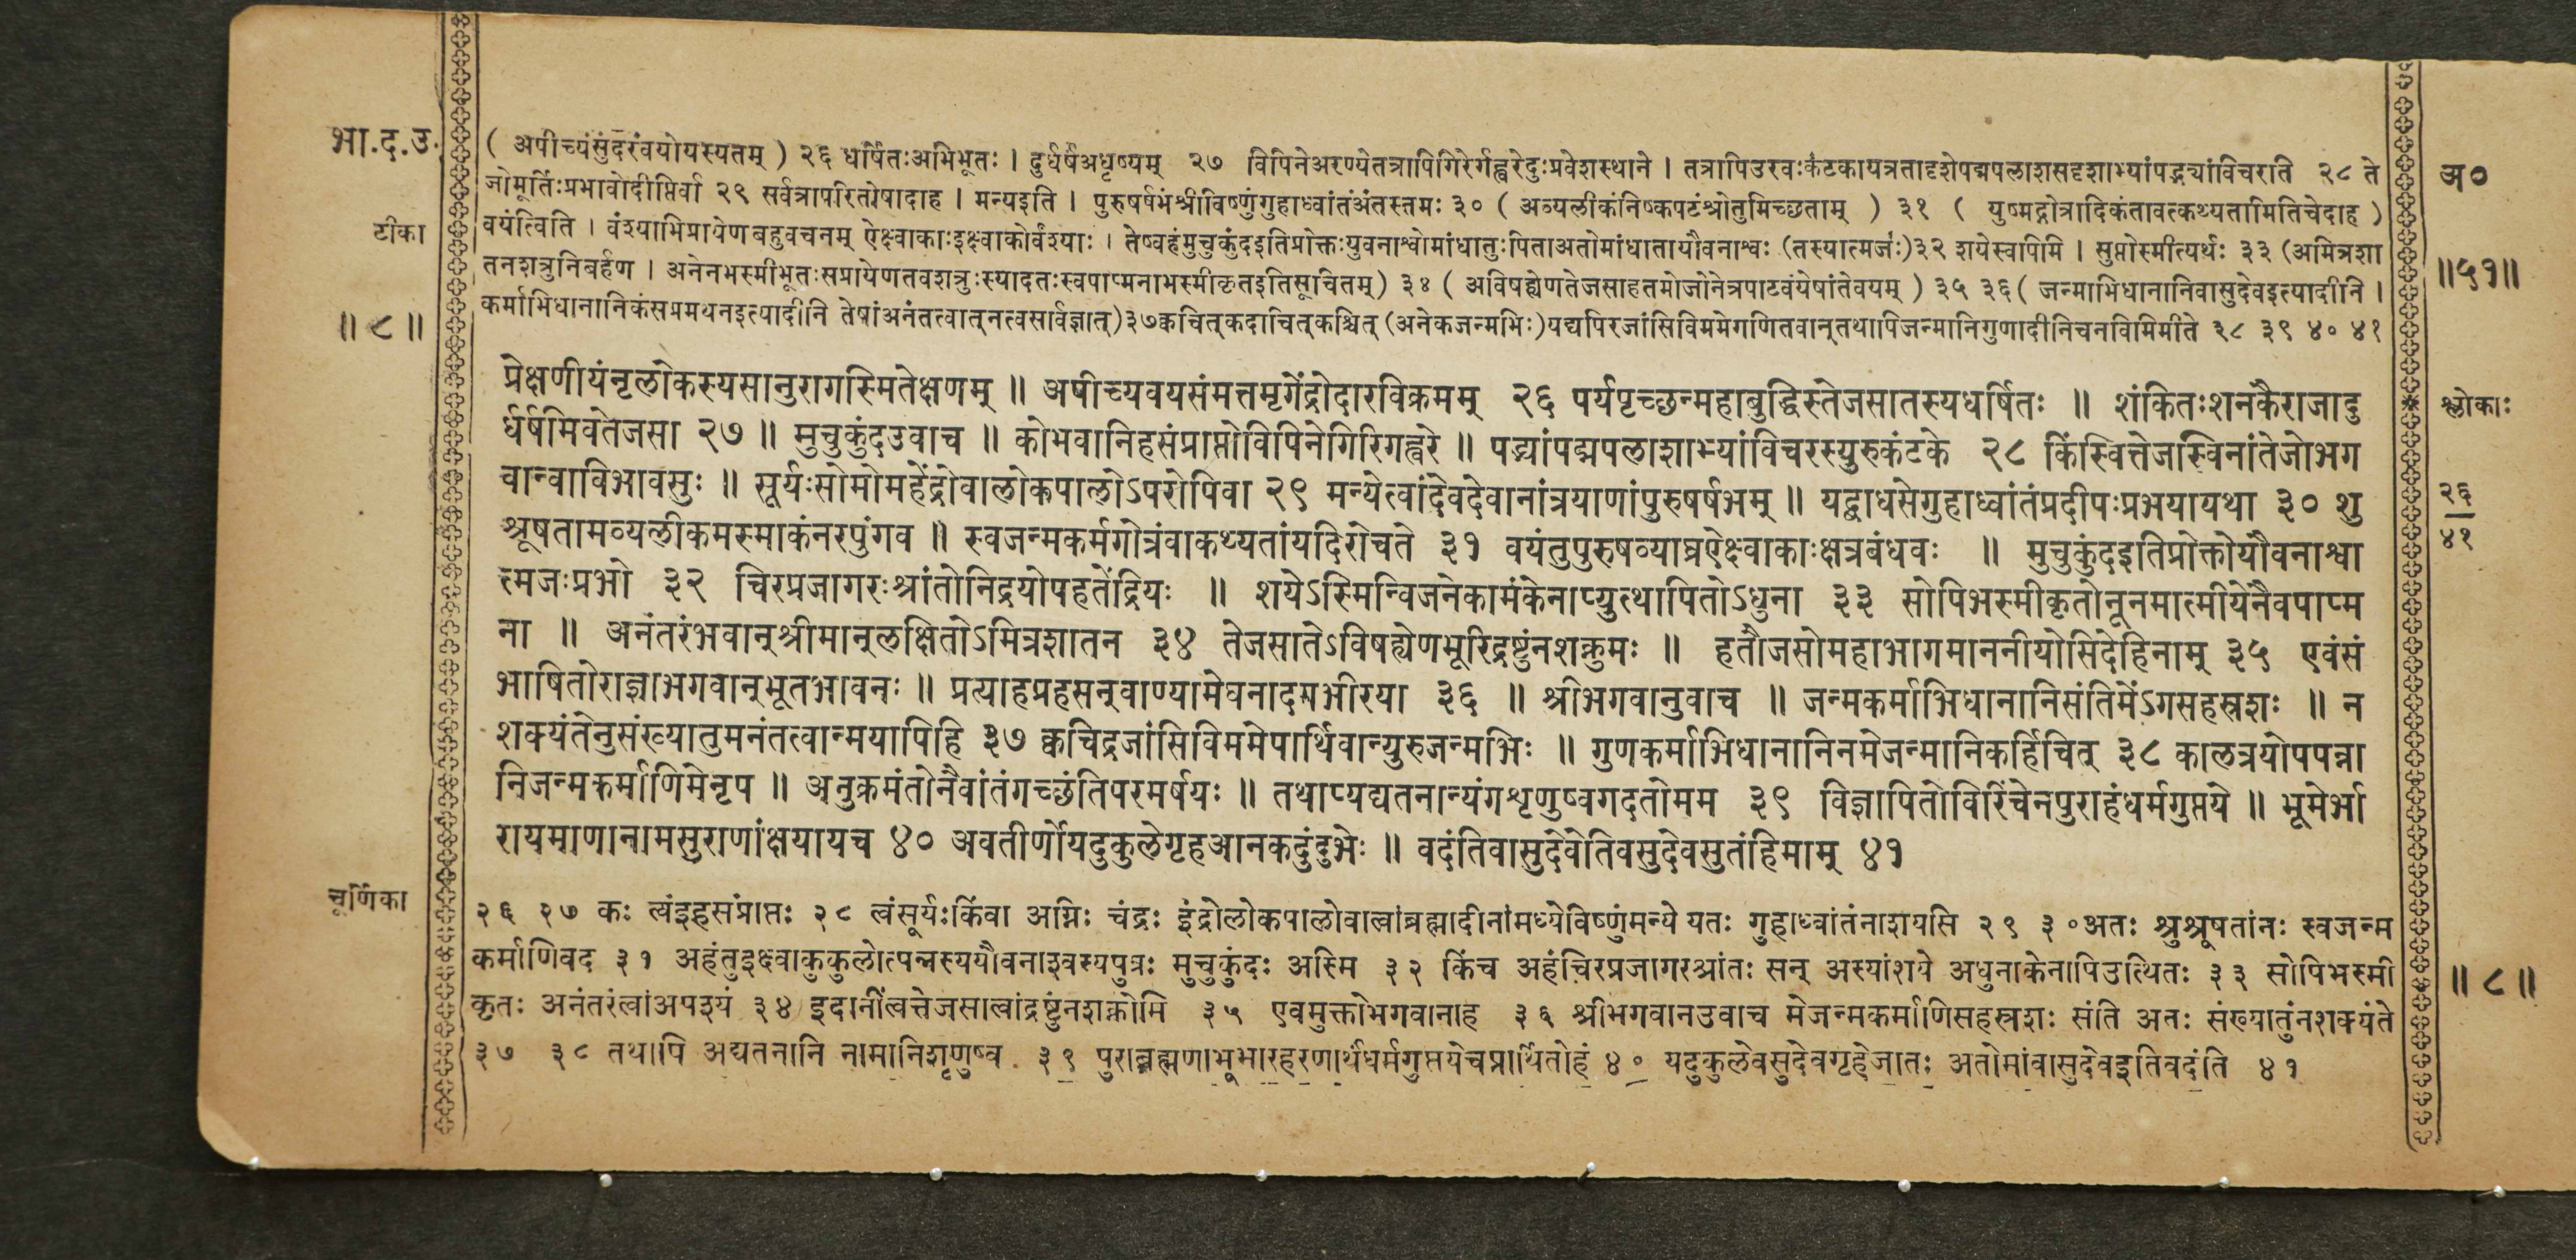 भा.द.उ.
टीका
॥ ८ ॥
( अपीच्यंसुंदरंवयोयस्यतम् ) २६ धर्षितःअभिभूतः । दुर्धर्षंअधृष्यम् २७ विपिनेअरण्येतत्रापिगिरेर्गह्वरेदुःप्रवेशस्थाने । तत्रापिउरवःकंटकायत्रतादृशेपद्मपलाशसदृशाभ्यांपद्भ्यांविचरति २८ ते
जोमूर्तिःप्रभावोदीप्तिर्वा २९ सर्वत्रापरितोषादाह । मन्यइति । पुरुषर्षभंश्रीविष्णुंगुहाध्वांतंअंतस्तमः ३० ( अव्यलीकंनिष्कपटंश्रोतुमिच्छताम् ) ३१ ( युष्मद्गोत्रादिकंतावत्कथ्यतामितिचेदाह )
वयंत्विति । वंश्याभिप्रायेणबहुवचनम् ऐक्ष्वाकाःइक्ष्वाकोर्वंश्याः । तेष्वहंमुचुकुंदइतिप्रोक्तःयुवनाश्वोमांधातुःपिताअतोमांधातायौवनाश्वः (तस्यात्मजः)३२ शयेस्वपिमि । सुप्तोस्मीत्यर्थः ३३ (अमित्रशा
तनशत्रुनिबर्हण । अनेनभस्मीभूतःसप्रायेणतवशत्रुःस्यादतःस्वपाप्मनाभस्मीकृतइतिसूचितम्) ३४ ( अविषह्येणतेजसाहतमोजोनेत्रपाटवंयेषांतेवयम् ) ३५ ३६( जन्माभिधानानिवासुदेवइत्यादीनि ।
कर्माभिधानानिकंसप्रमथनइत्यादीनि तेषांअनंतत्वात्नत्वसार्वज्ञात्)३७क्वचित्कदाचित्कश्चित् (अनेकजन्मभिः)यद्यपिरजांसिविममेगणितवान्तथापिजन्मानिगुणादीनिचनविमिमीते ३८ ३९ ४० ४१
प्रेक्षणीयंनृलोकस्यसानुरागस्मितेक्षणम् ॥ अपीच्यवयसंमत्तमृगेंद्रोदारविक्रमम् २६ पर्यपृच्छन्महाबुद्धिस्तेजसातस्यधर्षितः ॥ शंकितःशनकैराजादु
र्धर्षमिवतेजसा २७ ॥ मुचुकुंदउवाच ॥ कोभवानिहसंप्राप्तोविपिनेगिरिगह्वरे ॥ पद्भ्यांपद्मपलाशाभ्यांविचरस्युरुकंटके २८ किंस्वित्तेजस्विनांतेजोभग
वान्वाविभावसुः ॥ सूर्यःसोमोमहेंद्रोवालोकपालोऽपरोपिवा २९ मन्येत्वांदेवदेवानांत्रयाणांपुरुषर्षभम् ॥ यद्बाधसेगुहाध्वांतंप्रदीपःप्रभयायथा ३० शु
श्रूषतामव्यलीकमस्माकंनरपुंगव ॥ स्वजन्मकर्मगोत्रंवाकथ्यतांयदिरोचते ३१ वयंतुपुरुषव्याघ्रऐक्ष्वाकाःक्षत्रबंधवः ॥ मुचुकुंदइतिप्रोक्तोयौवनाश्वा
त्मजःप्रभो ३२ चिरप्रजागरःश्रांतोनिद्रयोपहतेंद्रियः ॥ शयेऽस्मिन्विजनेकामंकेनाप्युत्थापितोऽधुना ३३ सोपिभस्मीकृतोनूनमात्मीयेनैवपाप्म
ना ॥ अनंतरंभवान्श्रीमान्लक्षितोऽमित्रशातन ३४ तेजसातेऽविषह्येणभूरिद्रष्टुंनशक्नुमः ॥ हतौजसोमहाभागमाननीयोसिदेहिनाम् ३५ एवंसं
भाषितोराज्ञाभगवान्भूतभावनः ॥ प्रत्याहप्रहसन्वाण्यामेघनादगभीरया ३६ ॥ श्रीभगवानुवाच ॥ जन्मकर्माभिधानानिसंतिमेंऽगसहस्रशः ॥ न
शक्यंतेनुसंख्यातुमनंतत्वान्मयापिहि ३७ क्वचिद्रजांसिविममेपार्थिवान्युरुजन्मभिः ॥ गुणकर्माभिधानानिनमेजन्मानिकर्हिचित् ३८ कालत्रयोपपन्ना
निजन्मकर्माणिमेनृप ॥ अनुक्रमंतोनैवांतंगच्छंतिपरमर्षयः ॥ तथाप्यद्यतनान्यंगशृणुष्वगदतोमम ३९ विज्ञापितोविरिंचेनपुराहंधर्मगुप्तये ॥ भूमेर्भा
रायमाणानामसुराणांक्षयायच ४० अवतीर्णोयदुकुलेगृहआनकदुंदुभेः ॥ वदंतिवासुदेवेतिवसुदेवसुतंहिमाम् ४१
चूर्णिका
२६ २७ कः त्वंइहसंप्राप्तः २८ त्वंसूर्यःकिंवा अग्निः चंद्रः इंद्रोलोकपालोवात्वांब्रह्मादीनांमध्येविष्णुंमन्ये यतः गुहाध्वांतंनाशयसि २९ ३०अतः श्रुश्रूषतांनः स्वजन्म
कर्माणिवद ३१ अहंतुइक्ष्वाकुकुलोत्पन्नस्ययौवनाश्वस्यपुत्रः मुचुकुंदः अस्मि ३२ किंच अहंचिरप्रजागरश्रांतः सन् अस्यांशये अधुनाकेनापिउत्थितः ३३ सोपिभस्मी
कृतः अनंतरंत्वांअपश्यं ३४ इदानींत्वत्तेजसात्वांद्रष्टुंनशक्नोमि ३५ एवमुक्तोभगवानाह ३६ श्रीभगवानउवाच मेजन्मकर्माणिसहस्रशः संति अतः संख्यातुंनशक्यंते
३७ ३८ तथापि अद्यतनानि नामानिशृणुष्व ३९ पुराब्रह्मणाभूभारहरणार्थंधर्मगुप्तयेचप्रार्थितोहं ४० यदुकुलेवसुदेवगृहेजातः अतोमांवासुदेवइतिवदंति ४१
अ०
॥५१॥
श्लोकाः
२६
४१
॥ ८ ॥